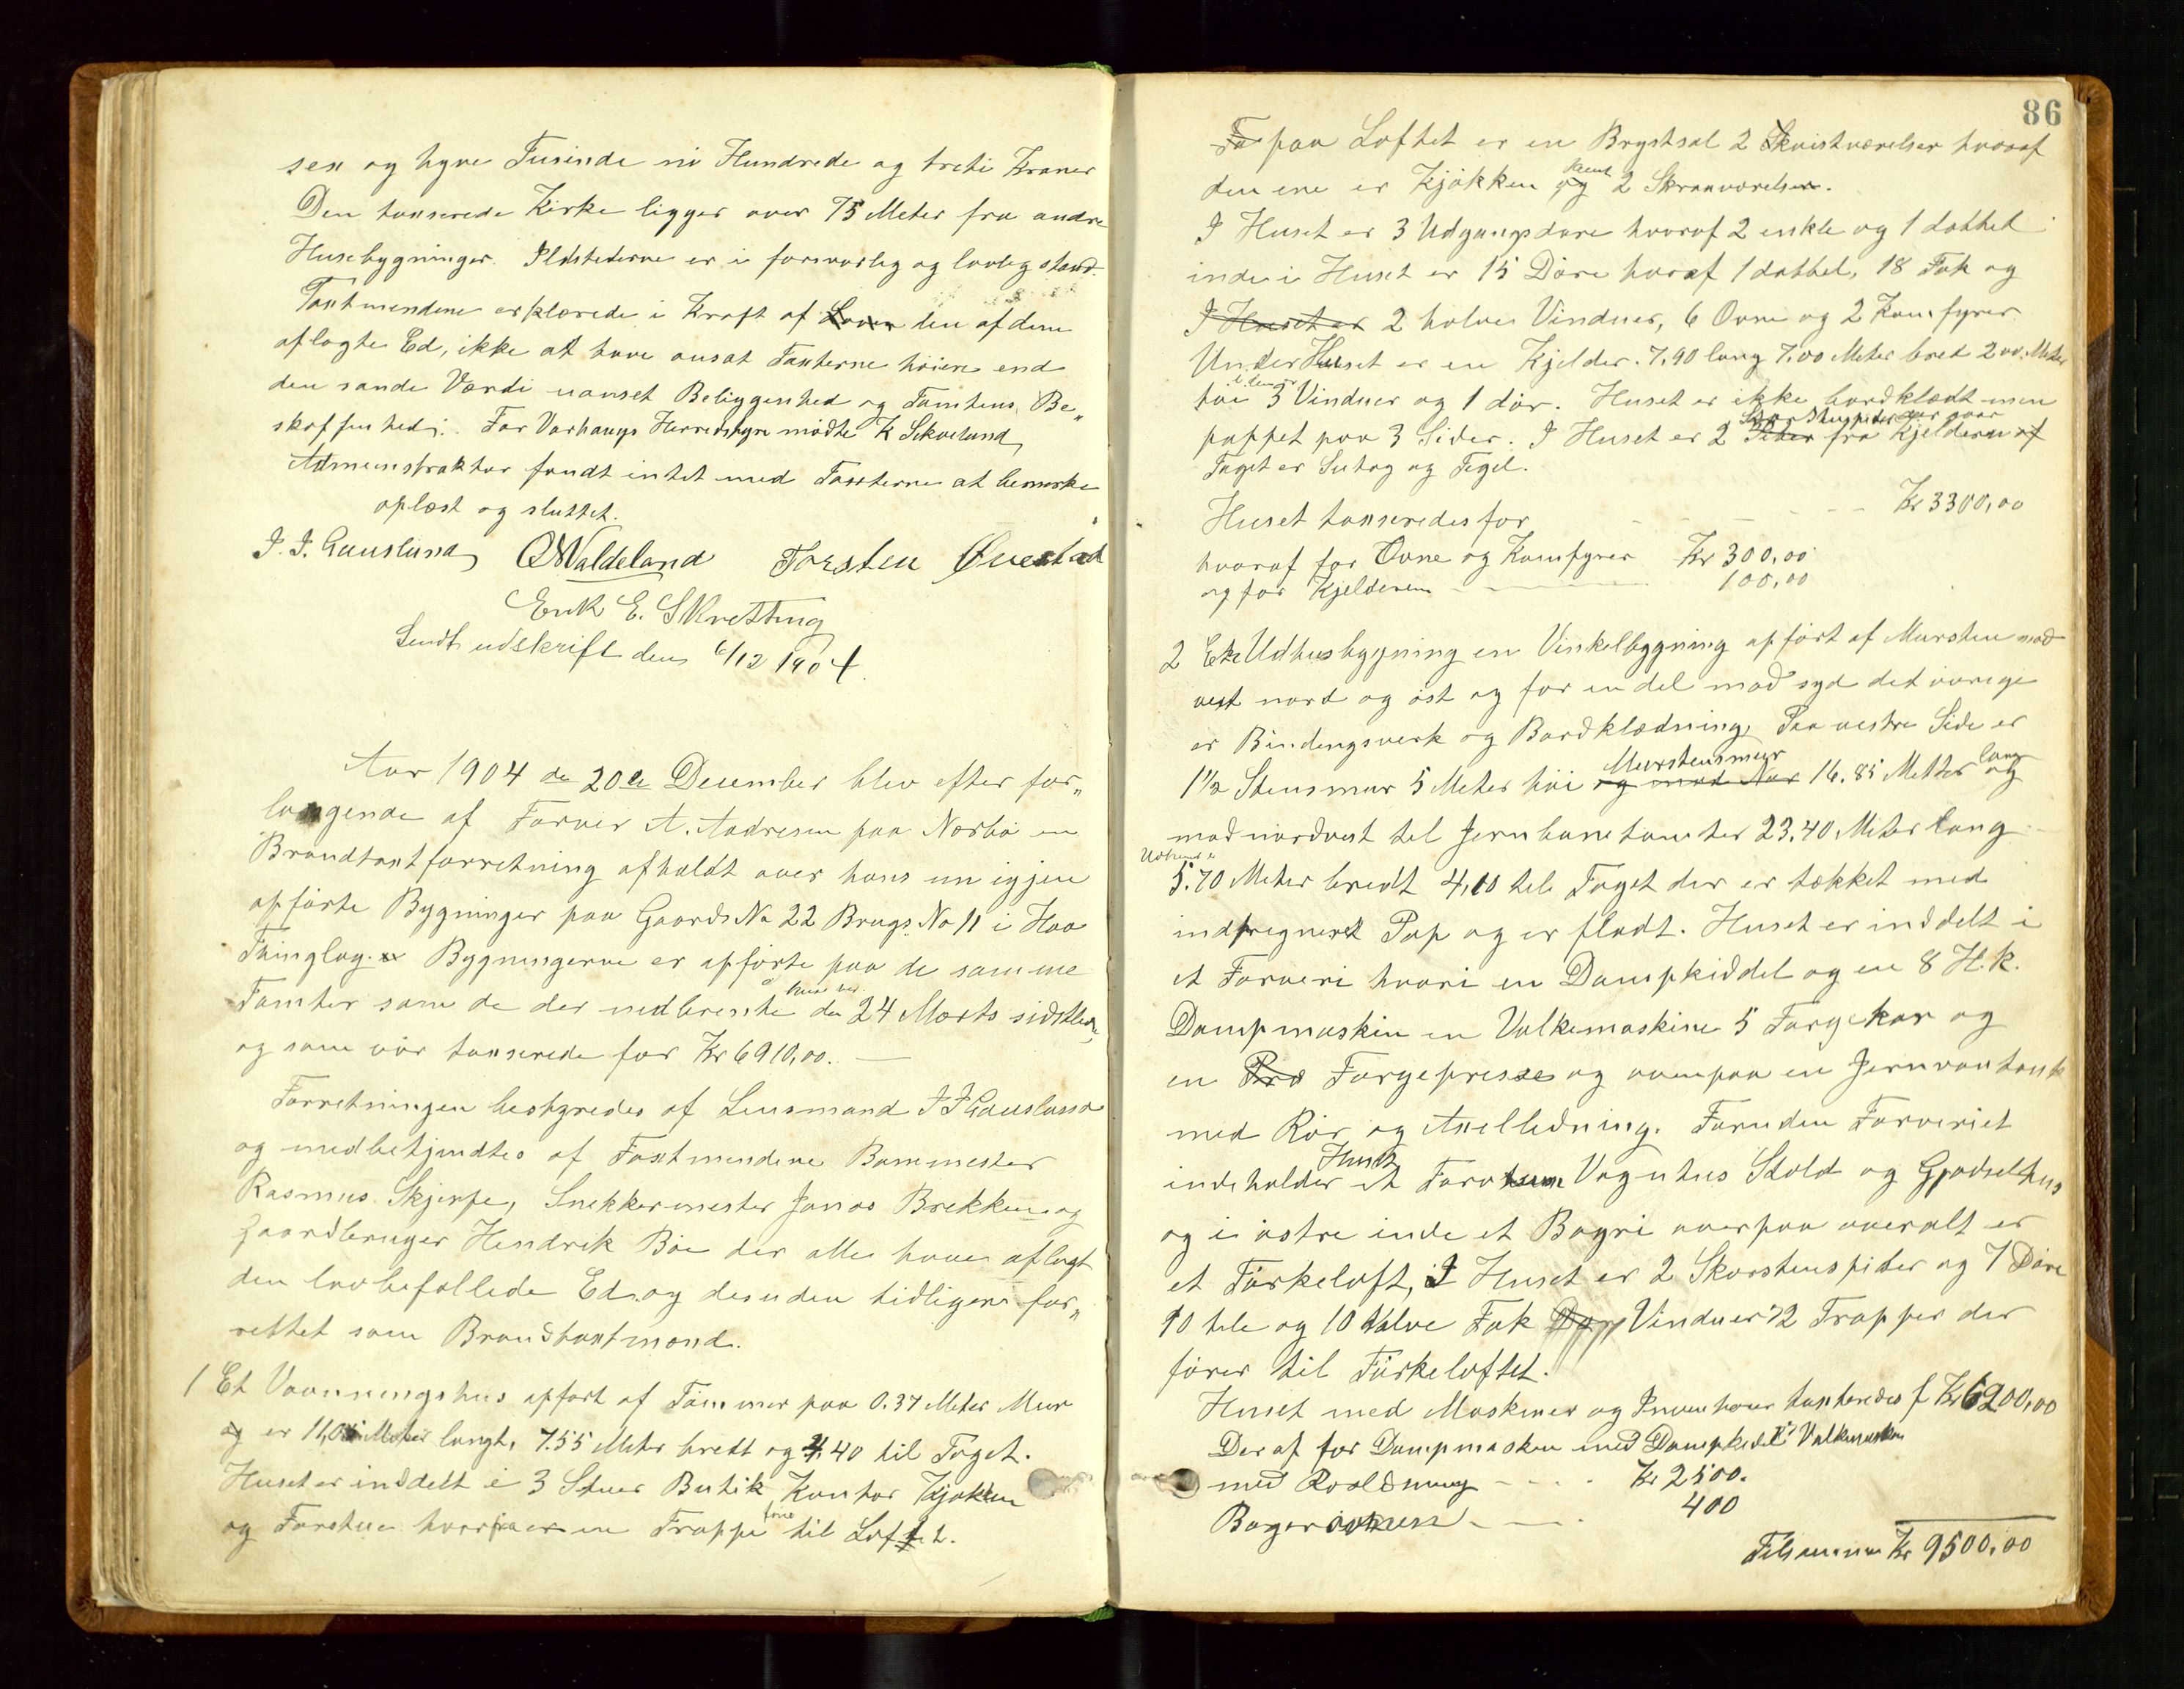 sex og tyve Tusinde ni Hundrede og treti Kroner
Den taxserede Kirke ligger over 75 Meter fra andre
Husebygninger. Ildstederne er i forsvarlig og lovlig stand.
Taxtmendene erklærede i Kraft af Loven den af dem
aflagte Ed, ikke at have ansat Taxterne høiere end
den sande Værdi uanset Beliggenhed og Tomtens Be„
skaffenhed. For Varhaugs Herredstyre mødte K Sikveland,
Administraktor fandt intet med Taxterne at bemærke
oplæst og sluttet.
J. J. Gauslund, O Waldeland Torsten Øvestad
Erik E. Skretting
Sendt udskrift den 6/12 1904.
Aar 1904 den 20de December blev efter for„
langende af Farver A. Andresen paa Nærbø en
Brandtaxtforretning afholdt over hans nu igjen
opførte Bygninger paa Gaards No 22 Brugs No 11 i Haa
Thinglag. Bygningerne er opførte paa de samme
Tomter som de der nedbrente den 24 Marts sidstleden,
og som vår taxserede for Kr 6910,00.
Forretningen bestyredes af Lensmand J J Gauslund
og medbetjendtes af Taxtmendene Bømmester
Rasmus Skjerpe, Snekkermester Jonas Brekken og
Gaardbruger Hendrik Bøe der alle have aflagt
den lovbefallede Ed og desuden tidligere for„
rettet som Brandtaxtmænd.
1 Et Vaanningshus opført af Tømmer paa 0.37 Meter Mur
og er 11,05 Meter langt, 7.55 Meter bredt og 4.40 til Taget.
Huset er inddelt i 3 Stuer Butik Kontor Kjøkken
og Forstue hvorfra er en Trappe til Loft 2.
86
paa Loftet er en Brystsal 2 Kvistværelser hvoraf
den ene er Kjøkken og samt 2 Skraaværelser.
I Huset er 3 Udgangsdøre hvoraf 2 enkle og 1 dobbel
inde i Huset er 15 Døre hvoraf 1 dobbel, 18 Fak og
I Huset er 2 halve Vinduer, 6 Ovne og 2 Komfyrer
Under Huset er en Kjelder. 7,90 lang 7,00 Meter bred 2 00 Meter
høi 3 Vinduer og 1 dør. Huset er ikke bordklædt men
pappet paa 3 Sider. I Huset er 2 Skorstenspider fra Kjelderen af
Taget er Sutag og Tegel.
Huset taxseredes for Kr 3300,00
hvoraf for Ovne og Komfyrer Kr 300,00
og for Kjelderen 100,00
2 Udhusbygning en Vinkelbygning opført af Mursten mod
vest nord og øst og for en del mod syd det øvrige
er Bindingsverk og Bordklædning, Paa vestre Side er
Murstensmur lang
1½ Stensmur 5 Meter høi og mod Nor 16.85 Metter og
mod nordvest til Jernbanetomter 23.40 Meter lang
5.70 Meter bredt 4,10 til Taget der er tækket med
indpregneret Pap og er fladt. Huset er inddelt i
et Farveri hvori en Dampkiddel og en 8 H.k.
Dampmaskin en Valkemaskine 5 Fargekar og
en Fargepresse og ovenpaa en Jernvantank
med Rør og Axelledning. Foruden Farveriet
Huset
indeholder et Vognhus Stald og Gjødselhus
og i østre inde et Bageri overpaa overalt er
et Tørkeloft, I Huset er 2 Skorstenspider og 7 Døre
10 hele og 10 halve Fak Vinduer 2 Trapper der
fører til Tørkeloftet.
Huset med Maskiner og Inventarer taxteredes f Kr 6200,00
Deraf for Dampmaskin med Dampkidel Valkemaskin
med Rørledning Kr 2500.
Bagerovnen 400
Tilsammen Kr 9500,00